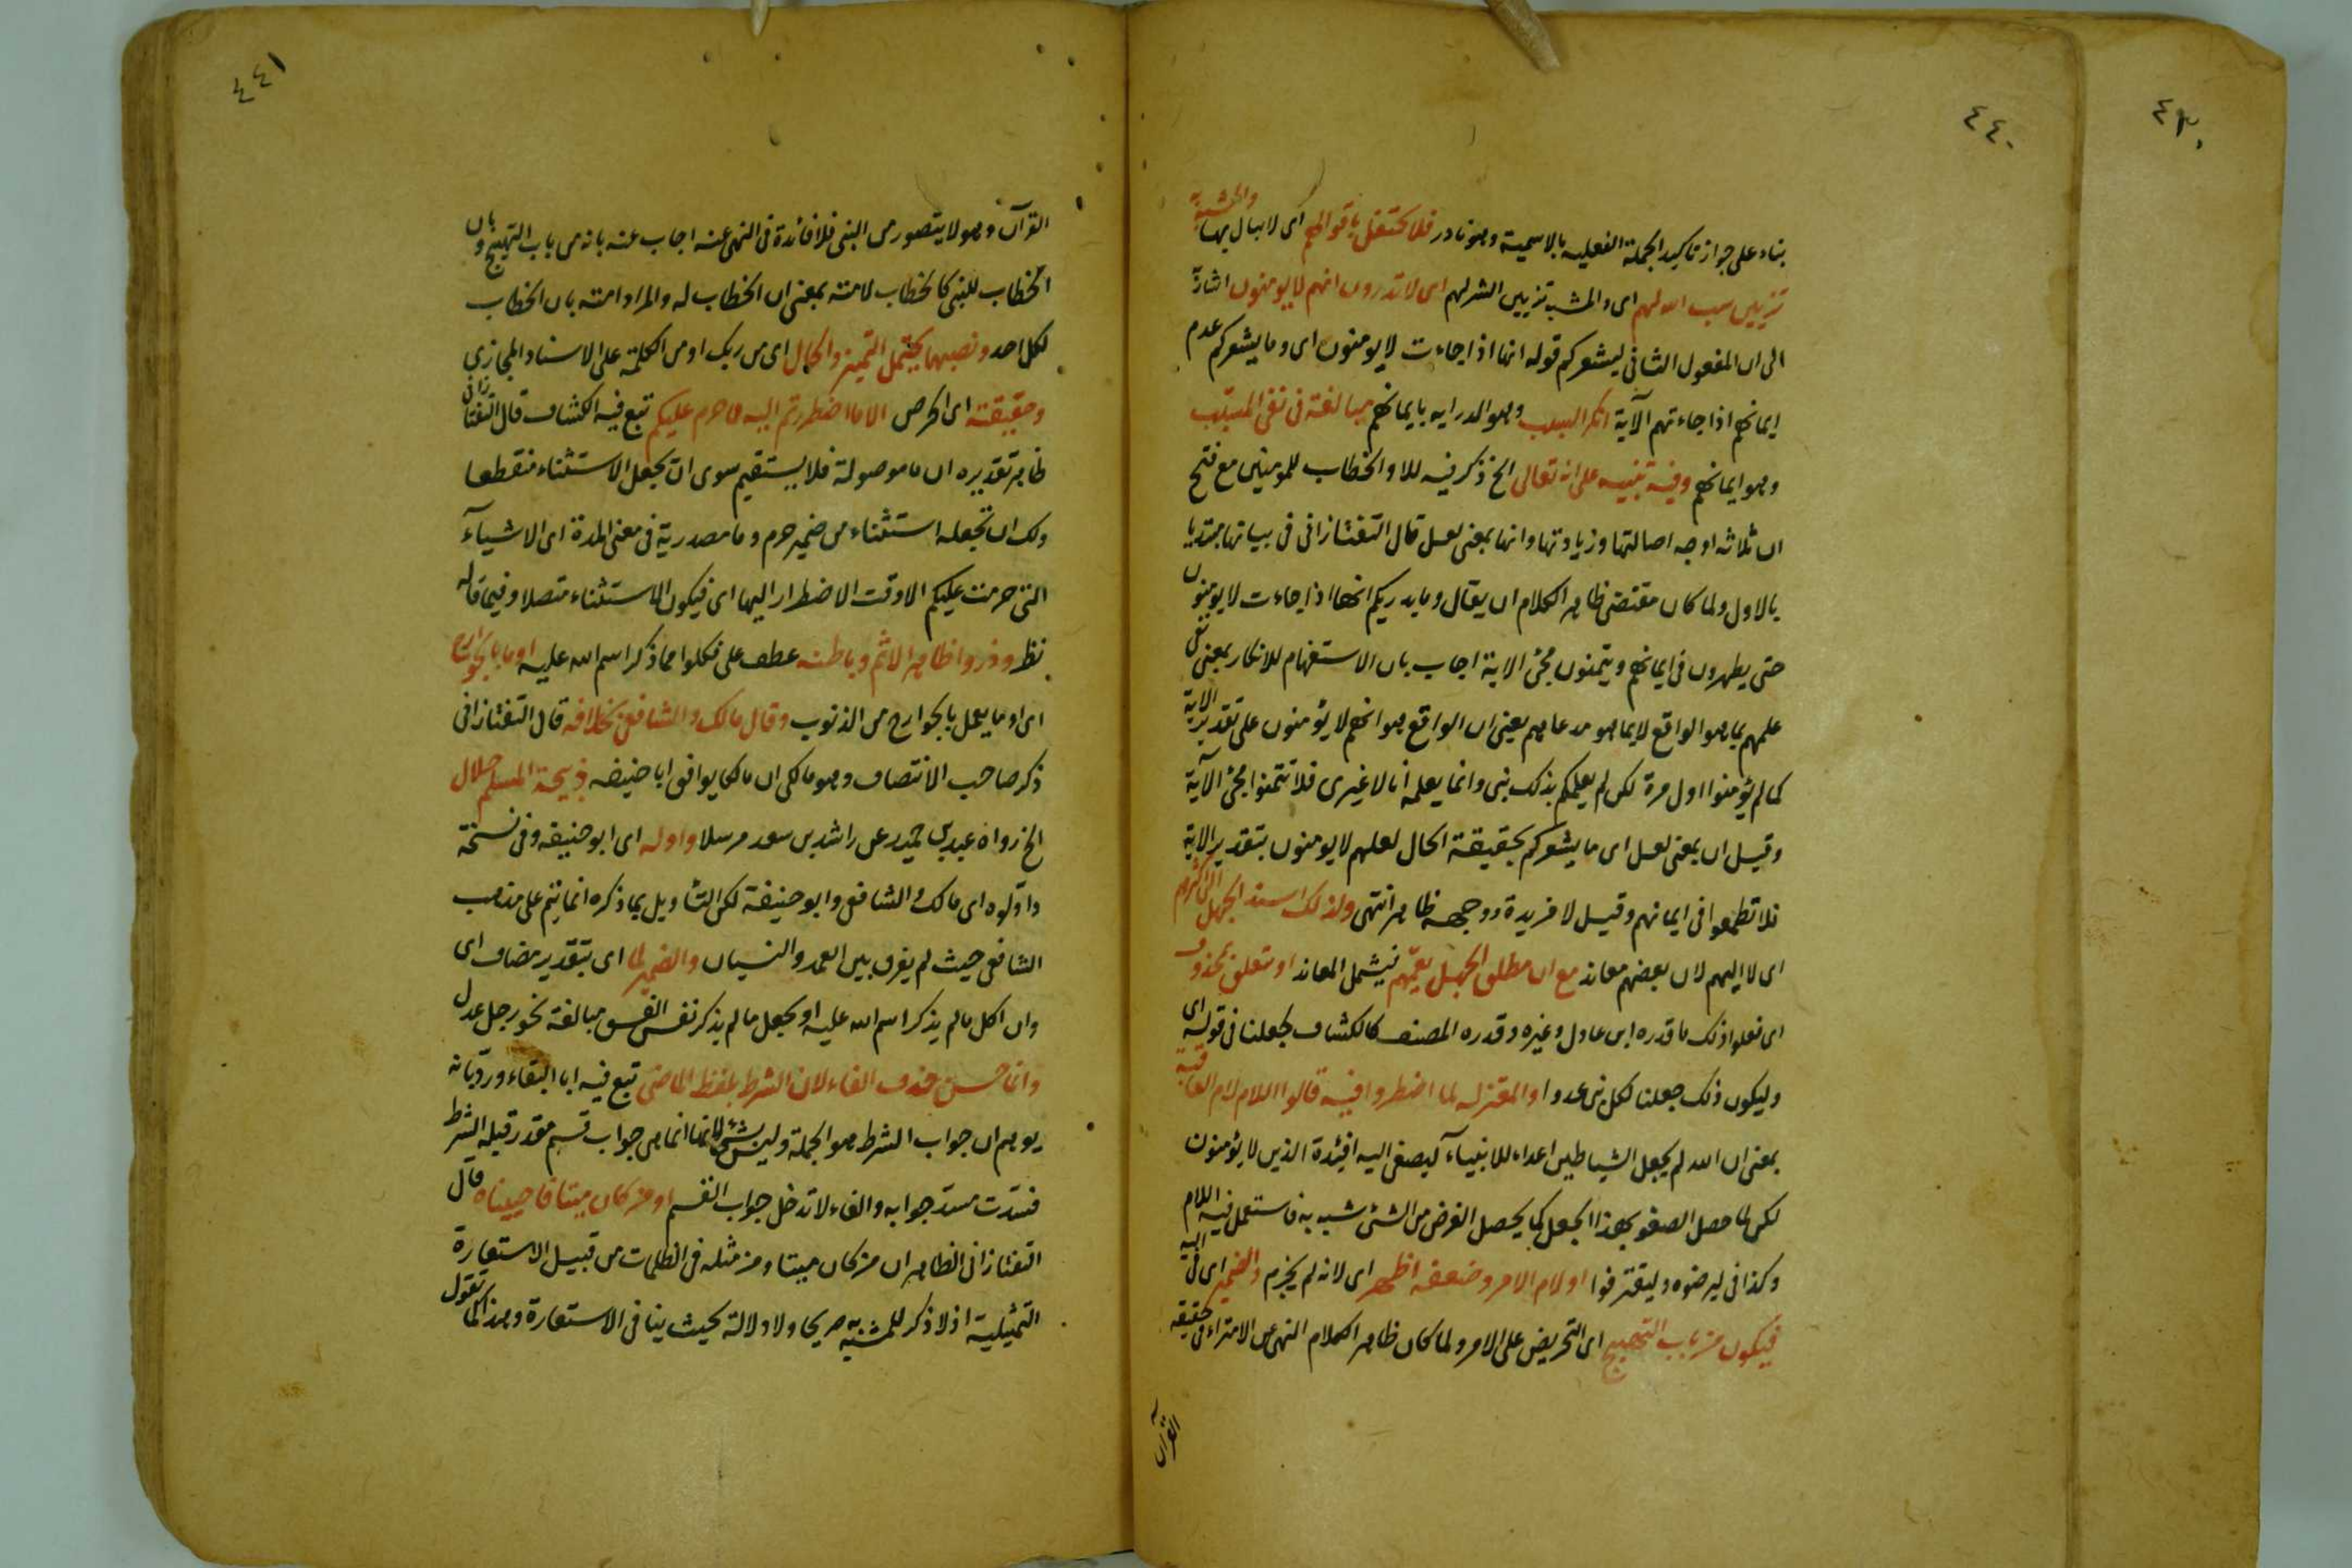 ٤٣٠
٤٤٠
بناء على جواز تاكيد الجملة الفعليه بالاسمية وهو نادر فلا تحتفل باقوالهم اى لا تبال بها والمشبه به
تزيين سب الله لهم اى والمشبه تزيين الشر لهم اى لا تدرون انهم لا يومنون اشارة
الى ان المفعول الثانى ليشعركم قوله انها اذا جاءت لا يومنون اى وما يشعركم عدم
ايمانهم اذا جاءتهم الآية انكر السبب وهو الدرايه بايمانهم مبالغة فى نفى المسبب
وهو ايمانهم وفيه تنبيه على انه تعالى الخ ذكر فيه للا والخطاب للمومنين مع فتح
ان ثلاثه اوجه اصالتها وزيادتها وانها بمعنى لعل قال التفتازانى فى بيانها مبتديا
بالاول ولما كان مقتضى ظاهر الكلام ان يقال وما يدريكم انها اذا جاءت لا يومنون
حتى يطهرون فى ايمانهم ويتمنون مجئ الاية اجاب بان الاستفهام للانكار بمعنى نفى
علمهم بما هو الواقع لا بما هو مدعاهم يعنى ان الواقع هو انهم لا يؤمنون على تقدير الاية
كما لم يؤمنوا اول مرة لكن لم يعلمكم بذلك نبى وانما يعلمه أنا لا غيرى فلا تتمنوا مجئ الآية
وقيل ان بمعنى لعل اى ما يشعركم بحقيقة الحال لعلهم لا يومنون بتقدير الاية
فلا تطمعوا فى ايمانهم وقيل لا مزيدة ووجهه ظاهر انتهى ولذلك اسند الجهل الى اكثرهم
اى لا اليهم لان بعضهم معاند مع ان مطلق الجهل يعمهم فيشمل المعاند او متعلق بمحذوف
اى فعلوا ذلك ما قدره ابن عادل وغيره وقدره المصنف كالكشاف جعلنا فى قوله اى
وليكون ذلك جعلنا لكل نبى عدوا والمعتزله لما اضطروا فيه قالوا اللام لام العاقبة
بمعنى ان الله لم يجعل الشياطين اعداء للانبياء ليصغى اليه افئدة الذين لا يؤمنون
لكن لما حصل الصغو بهذا الجعل كما يحصل الغرض من الشئ شبه به فاستعمل فيه اللام
وكذا فى ليرضوه وليقترفوا او لام الامر وضعفه اظهر اى لانه لم يجزم والضمير اى فى اليه
فيكون من باب التهييج اى التحريض على الامر ولما كان ظاهر الكلام النهى عن الامتراء فى حقيقه
القرآن
٤٤١
القرآن وهو لا يتصور من النبى فلا فائدة فى النهى عنه اجاب عنه بانه من باب التهييج وبان
الخطاب للنبى كالخطاب لامته بمعنى ان الخطاب له والمراد امته بان الخطاب
لكل احد ونصبهما يحتمل التميز والحال اى من ربك او من الكلمة على الاسناد المجازى
وحقيقته اى الحرص الا ما اضطررتم اليه مما حرم عليكم تبع فيه الكشاف قال التفتازانى
ظاهر تقديره ان ما موصولة فلا يستقيم سوى ان يجعل الاستثناء منقطعا
ولك ان تجعله استثناء من ضمير حرم وما مصدرية فى معنى المدة اى الاشيآء
التى حرمت عليكم الا وقت الاضطرار اليها اى فيكون الاستثناء متصلا وفيما قاله
نظر وذروا ظاهر الاثم وباطنه عطف على فكلوا مما ذكر اسم الله عليه او ما بالجوارح
اى او ما يعمل بالجوارح من الذنوب وقال مالك والشافعى بخلافه قال التفتازانى
ذكر صاحب الانتصاف وهو مالكى ان مالكا يوافق ابا حنيفه ذبيحة المسلم حلال
الخ رواه عبد بن حميد عن راشد بن سعد مرسلا واوله اى ابو حنيفه وفى نسخة
واولوه اى مالك والشافعى وابو حنيفة لكن التأويل بما ذكره انما يتم على مذهب
الشافعى حيث لم يفرق بين العمد والنسيان والضمير لما اى بتقدير مضاف اى
وان اكل ما لم يذكر اسم الله عليه او بجعل ما لم يذكر نفس الفسق مبالغة نحو رجل عدل
وانما حسن حذف الفاء لان الشرط بلفظ الماضى تبع فيه ابا البقاء ورد بانه
يوهم ان جواب الشرط هو الجملة وليس بشئ لانها انما هى جواب قسم مقدر قبله الشرط
فسدت مسد جوابه والفاء لا تدخل جواب القسم او من كان ميتا فاحييناه قال
التفتازانى الظاهر ان من كان ميتا ومن مثله فى الظلمات من قبيل الاستعارة
التمثيلية اذ لا ذكر للمشبه صريحا ولا دلالة بحيث ينافى الاستعارة وهذا كما تقول